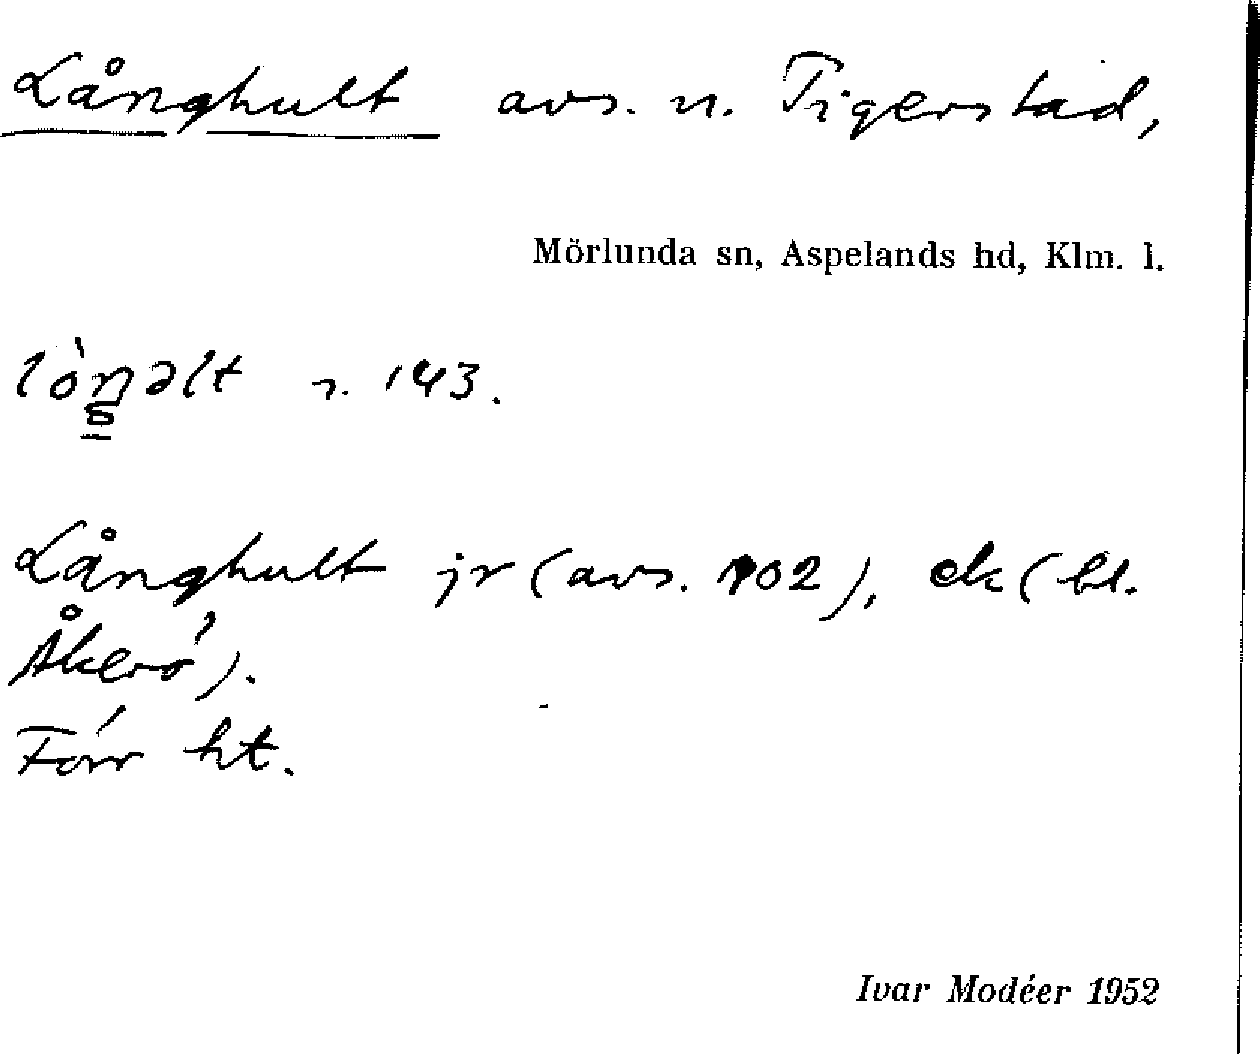 Långhult avs. u. Tigerstad,
Mörlunda sn, Aspelands hd, Klm. l.
lòŋəlt s. 143.
Långhult jr (avs. 1902), ek (bl.
Åkerö).
Förr ht.
Ivar Modéer 1952